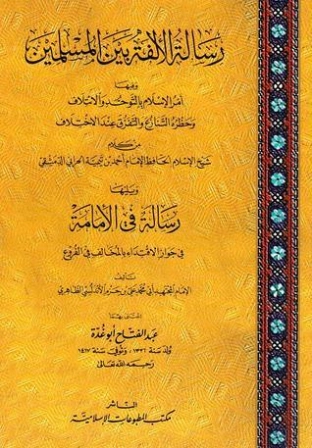 رسالة الألفة بين المسلمين
وفيها
أمر الإسلام بالتوحد والائتلاف
وحظره التنازع والتفرق عند الاختلاف
من كلام
شيخ الإسلام الحافظ الإمام أحمد بن تيمية الحراني الدمشقي
ويليها
رسالة في الإمامة
في جواز الاقتداء بالمخالف في الفروع
تأليف
الإمام المجتهد أبي محمد علي بن حزم الأندلسي الظاهري
اعتنى بهما
عبد الفتاح أبو غدة
ولد سنة ١٣٣٦ وتوفي سنة ١٤١٧
رحمه الله تعالى
الناشر
مكتب المطبوعات الإسلامية